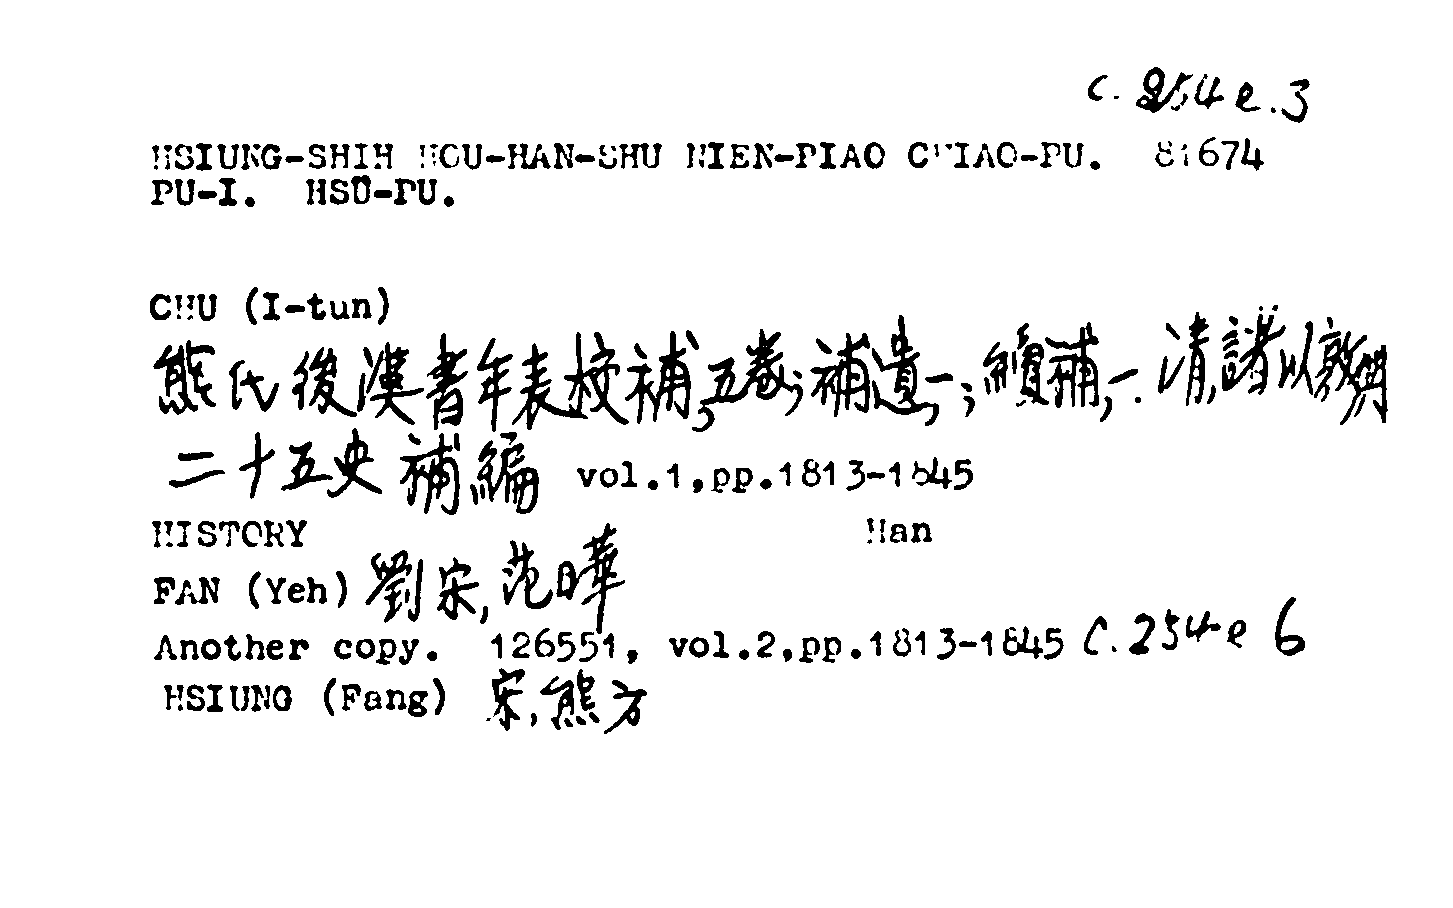 C. 254 e. 3
HSIUNG-SHIH HOU-HAN-SHU NIEN-PIAO CHIAO-PU. 81674
PU-I. HSÜ-PU.
CHU (I-tun)
熊氏後漢書年表校補,五卷;補遺,一;續補,一. 清,諸以敦撰
二十五史補編 vol.1,pp.1813-1845
HISTORY Han
FAN (Yeh) 劉宋,范曄
Another copy. 126551, vol.2,pp.1813-1845 C. 254 e 6
HSIUNG (Fang) 宋,熊方